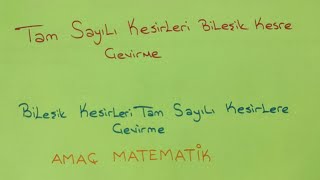 Tam Sayılı Kesirleri Bileşik Kesre
Çevirme
Bileşik Kesirleri Tam Sayılı Kesirlere
Çevirme
AMAÇ MATEMATİK